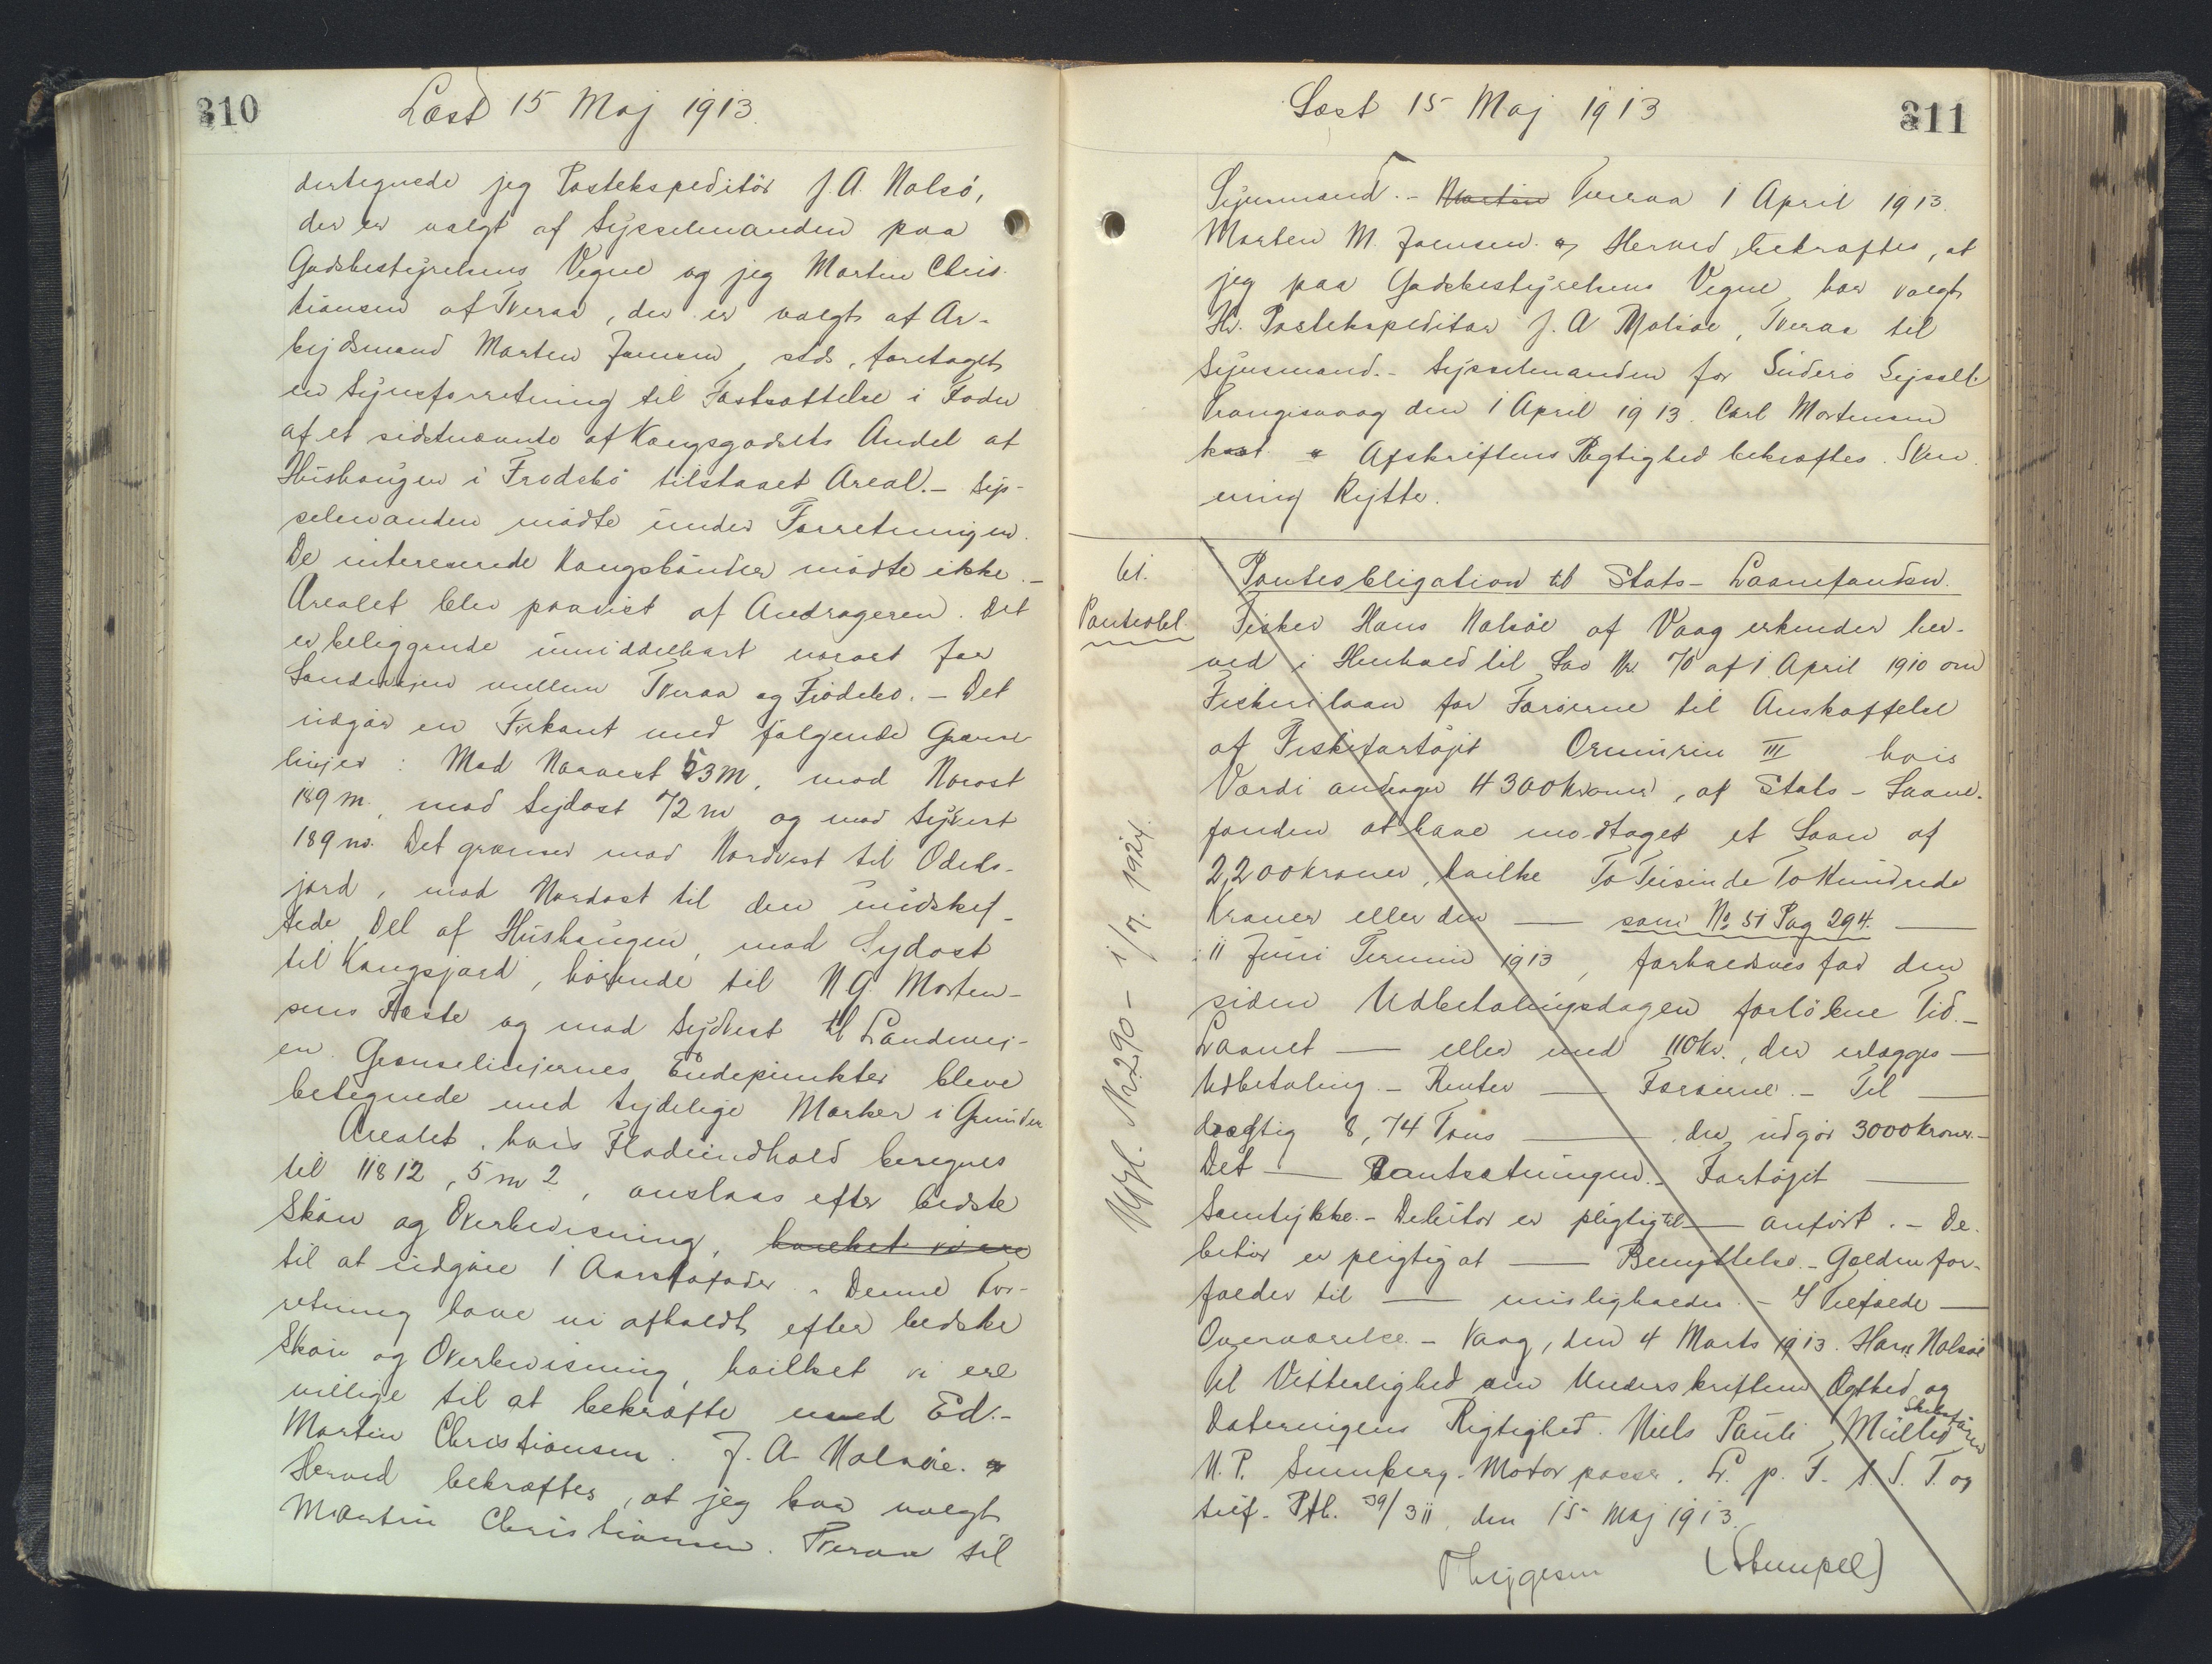 310
Læst 15 Maj 1913.
dertegnede jeg Postekspeditör J. A. Nolsö,
der er valgt af Sysselmanden paa
Godsbestyrelsens Vegne og jeg Martin Chris-
tiansen af Tveraa, der er valgt af Ar-
bejdsmand Morten Joensen, sstds, foretaget
en Synsforretning til Fastsættelse i Foder
af et sidstnævnte af Kongsgodsets Andel af
Hushaugen i Frodebö tilstaaet Areal. - Sys-
selmanden mödte under Forretningen.
De interesserede Kongsbönder mödte ikke. -
Arealet blev paavist af Andrageren. Det
er beliggende umiddelbart norost for
Landevejen mellem Tveraa og Frodebo. - Det
udgör en Firkant med fölgende Grænse-
linjer: Mod Norvest 53 M, mod Norost
189 m., mod Sydost 72 m og mod Sydvest
189 m. Det grænser mod Nordvest til Odels-
jord, mod Nordost til den uudskif-
tede Del af Hushaugen, mod Sydost
til Kongsjord, hörende til N G. Morten-
sens Fæste og mod Sydvest til Landevej-
en. Grænselinjernes Endepunkter bleve
betegnede med tydelige Mærker i Grunden
Arealet, hvis Fladeindhold beregnes
til 11812,5 m 2, anslaas efter bedste
Skön og Overbevisning, hvilket vi ere
til at udgöre 1 Aarskofoder. Denne For-
retning have vi afholdt efter bedste
Skön og Overbevisning, hvilket vi ere
villige til at bekræfte med Ed. -
Martin Christiansen. J. A. Nolsöe.
Herved bekræftes, at jeg har valgt
Martin Christiansen. Tveraa til
311
Læst 15 Maj 1913
Synsmand. - Martin Tveraa 1 April 1913.
Morten M. Joensen. Herved bekræftes, at
jeg paa Godsbestyrelsens Vegne har valgt
Hr. Postekspeditör J. A Nolsöe, Tveraa til
Synsmand. - Sysselmanden for Suderö Syssel.
Trangisvaag den 1 April 1913. Carl Mortensen
kost. Afskriftens Rigtighed bekræftes.
Rytte.
61.
Panteobl.
Panteobligation til Stats-Laanefonden.
Fisker Hans Nolsöe af Vaag erkender her-
ved i Henhold til Lov Nr. 70 af 1 April 1910 om
Fiskerilaan for Færöerne til Anskaffelse
af Fiskefartöjet Ormurin III hvis
Værdi andrager 4300 Kroner, af Stats-Laane-
fonden at have modtaget et Laan af
2,200 Kroner, hvilke To Tusinde To Hundrede
Kroner eller den — som No 51 Pag 294. —
: 11 Juni Termin 1913, forholdsvis for den
siden Udbetalingsdagen forlöbne Tid. -
Laanet — eller med 110 kr., der erlægges —
Udbetaling. - Renter — Færöerne. - Til —
drægtig 8,74 Tons — der udgör 3000 Kroner. -
Det — Pantsætningen. - Fartöjet —
Samtykke. - Debitor er pligtig til — anfört. - De-
bitor er pligtig at — Benyttelse. - Gælden for-
falder til — misligholder. - I Tilfælde —
Overværelse. - Vaag, den 4 Marts 1913. Hans Nolsöe
Til Vitterlighed om Underskriftens Ægthed og
Dateringens Rigtighed. Niels Pauli Müller
N. P. Sumberg. Motorpasser. Lr. p. F. t. S. T. og
tilf. Ptb. 39/311, den 15 Maj 1913.
Thygesen (Stempel)
Afl. Nr. 290 - 1/7. 1924.